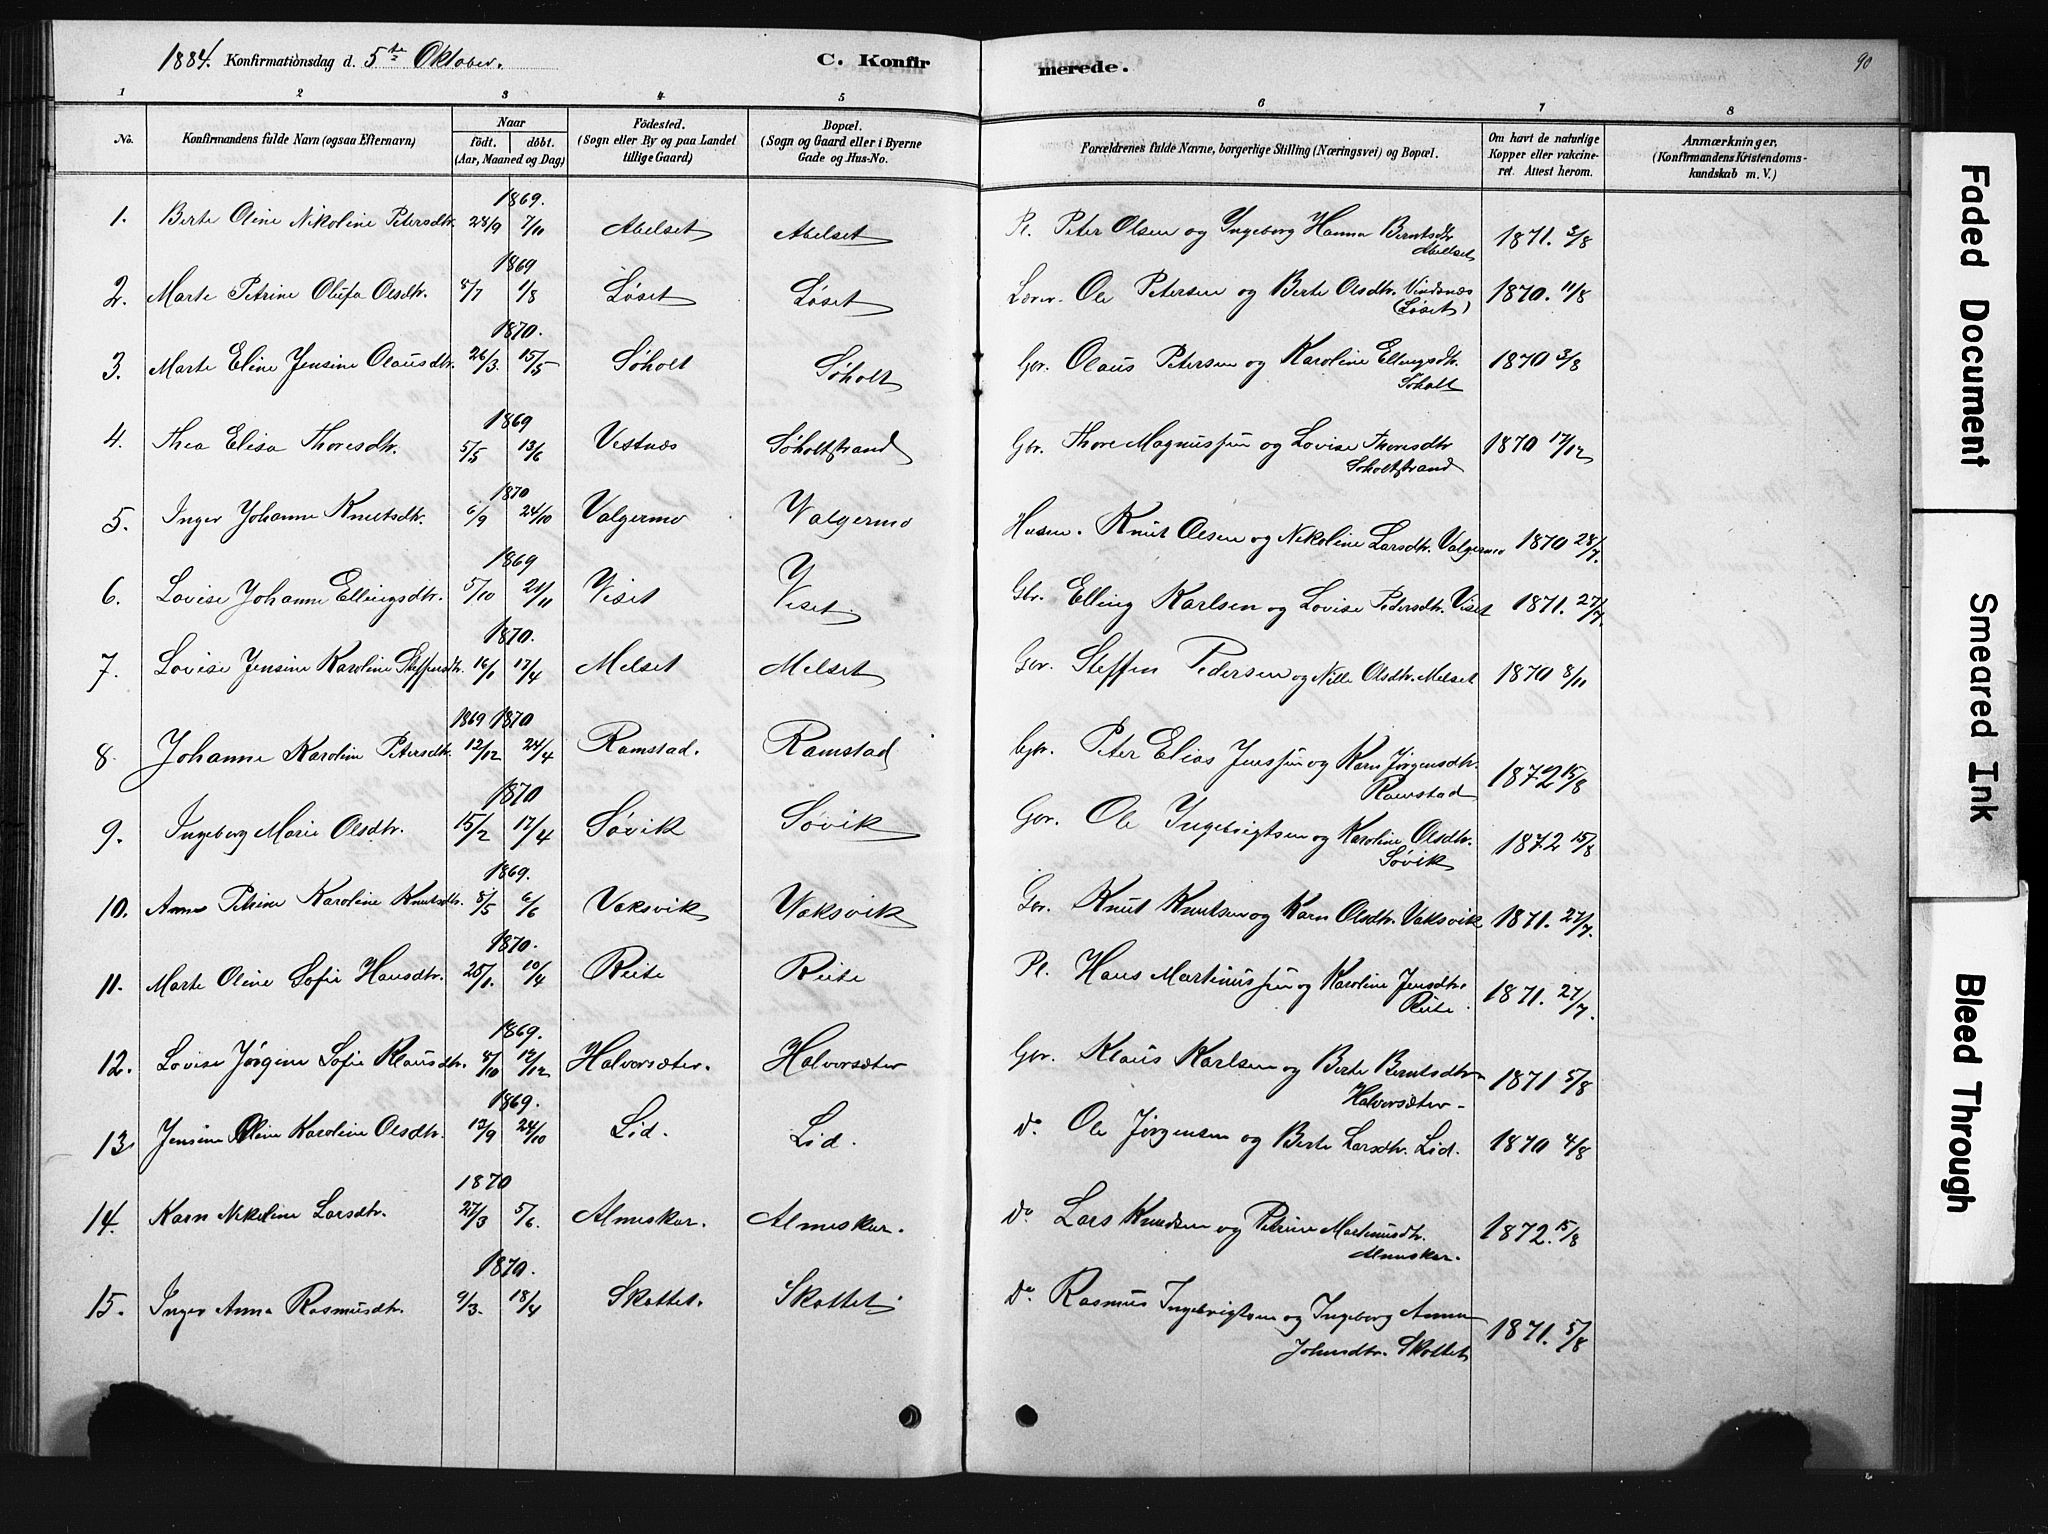 1884. Konfirmationsdag d. 5te Oktober. C. Konfirmerede. 90
1 2 3 4 5 6 7 8
No. Konfirmandens fulde Navn (ogsaa Efternavn) Naar født. døbt. (Aar, Maaned og Dag) Fødested. (Sogn eller By og paa Landet tillige Gaard) Bopæl. (Sogn og Gaard eller i Byerne Gade og Hus-No. Forældrenes fulde Navne, borgerlige Stilling (Næringsvei) og Bopæl. Om havt de naturlige Kopper eller vakcineret. Attest herom. Anmærkninger, (Konfirmandens Kristendomskundskab m. V.)
1869.
1. Berte Oline Nikoline Petersdtr. 28/9 7/10 Abelset Abelset Pl. Peter Olsen og Ingeborg Hanna Berntsdtr 1871. 3/8
Abelset
1869
2. Marte Petrine Olufa Olsdtr. 8/7 1/8 Løset Løset Lærer. Ole Petersen og Berte Olsdtr. Vindsnæs 1870. 11/8
(Løset)
1870.
3. Marte Eline Jensine Olausdtr. 26/3. 15/5 Søholt Søholt Gbr. Olaus Petersen og Karoline Ellingsdtr. 1870 3/8
Søholt
1869
4. Thea Elisa Thoresdtr. 5/5 13/6 Vestnæs Søholtstrand Gbr. Thore Magnussen og Lovise Thoresdtr 1870 17/12
Søholtstrand
1870
5. Inger Johanne Knutsdtr. 6/9 24/10 Valgermo Valgermo Husm. Knut Olsen og Nikoline Larsdtr. Valgermo 1870 28/7.
1869
6. Lovise Johanne Ellingsdtr. 5/10 21/11 Viset Viset Gbr. Elling Karlsen og Lovise Pedersdtr. Viset 1871. 27/7.
1870.
7. Lovise Jensine Karoline Steffensdtr. 16/1 17/4 Melset Melset Gbr. Steffen Pedersen og Nille Olsdtr. Melset 1870 8/11
1869 1870
8. Johanne Karoline Petersdtr. 12/12 24/4 Ramstad. Ramstad Gbr. Peter Elias Jenssen og Karn Jørgensdtr. 1872 15/8
Ramstad
1870
9. Ingeborg Marie Olsdtr. 15/2 17/4 Søvik Søvik Gbr. Ole Ingebrigtsen og Karoline Olsdtr. 1872 15/8
Søvik
1869.
10. Anne Petrine Karoline Knutsdtr. 8/5 6/6 Vaksvik Vaksvik Gbr. Knut Knutsen og Karn Olsdtr. Vaksvik 1871. 27/7.
1870.
11. Marte Oline Sofie Hansdtr. 25/1. 10/4 Reite Reite Pl. Hans Martinussen og Karoline Jensdtr. 1871. 27/7.
Reite.
1869.
12. Lovise Jørgine Sofie Klausdtr. 8/10 12/12 Halvorsæter. Halvorsæter Gbr. Klaus Karlsen og Berte Berntsdtr. 1871 5/8
Halvorsæter
1869.
13. Jensine Oline Karoline Olsdtr. 12/9 24/10 Lid. Lid. Do Ole Jørgensen og Berte Larsdtr. Lid. 1870 4/8
1870
14. Karn Nikoline Larsdtr. 27/3 5/6. Almeskar. Almeskar. Do Lars Knudsen og Petrine Martinusdtr. 1872. 15/8
Almeskar.
1870.
15. Inger Anna Rasmusdtr. 9/3. 18/4 Skottet. Skottet Do Rasmus Ingebrigtsen og Ingeborg Anna 1871. 5/8
Johnsdtr. Skottet
Faded Document
Smeared Ink
Bleed Through